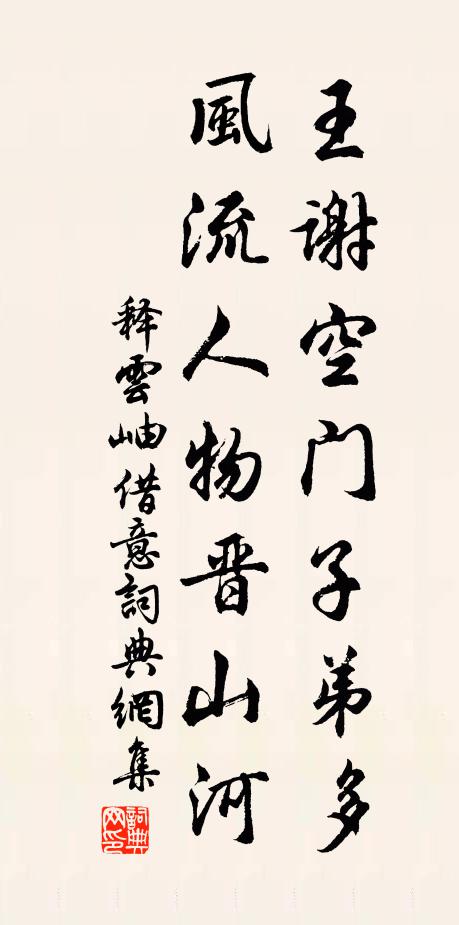 王謝空门子弟多
風流人物晋山河
释雲岫借意詞典網集
詞典网印